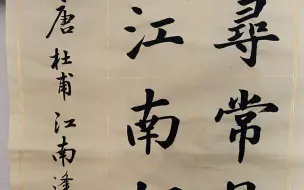 尋常
江南
唐 杜甫 江南逢